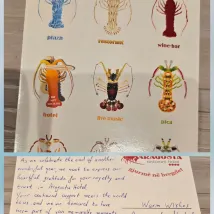 restorant
wine bar
hotel
pica
ARAGOSTA
As we celebrate the end of another
wonderful year, we want to express our
heartfelt gratitude for your loyalty and
trust in Aragosta hotel.
Your continued support means the world
to us, and we are honored to have
been part of your memorable moments
Warm Wishes